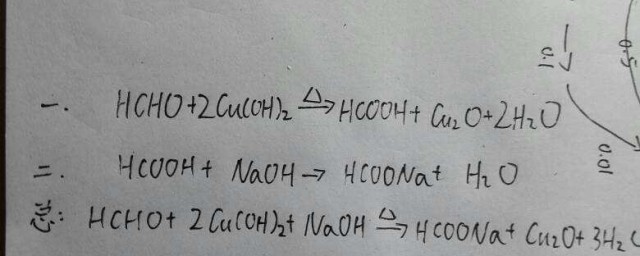 一. HCHO+2Cu(OH)₂ △→ HCOOH+ Cu₂O+2H₂O
二. HCOOH + NaOH → HCOONa+ H₂O
总: HCHO+ 2Cu(OH)₂+ NaOH △→ HCOONa+ Cu₂O+ 3H₂O
0.1
0.5
0.01